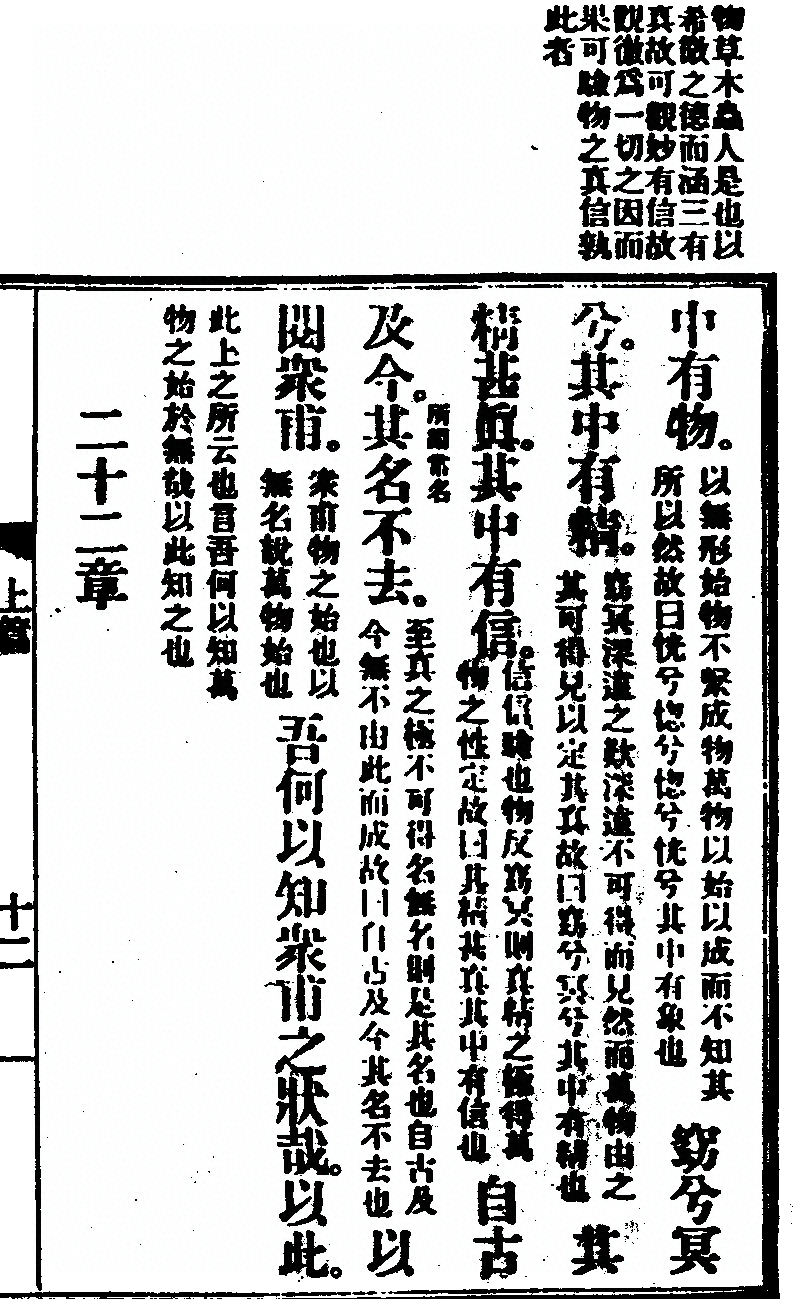 物草木蟲人是也以
希微之德而涵三有
真故可觀妙有信故
觀徼爲一切之因而
果可驗物之真信孰
此者
中有物。
以無形始物不繫成物萬物以始以成而不知其
所以然故曰恍兮惚兮惚兮恍兮其中有象也
窈兮冥
兮。其中有精。
窈冥深遠之歎深遠不可得而見然而萬物由之
其可得見以定其真故曰窈兮冥兮其中有精也
其
精甚眞。其中有信。
信信驗也物反窈冥則真精之極得萬
物之性定故曰其精甚真其中有信也
自古
及今。其名不去。
所謂常名
至真之極不可得名無名則是其名也自古及
今無不由此而成故曰自古及今其名不去也
以
閱衆甫。
衆甫物之始也以
無名說萬物始也
吾何以知衆甫之狀哉。以此。
此上之所云也言吾何以知萬
物之始於無哉以此知之也
二十二章
上篇
十二